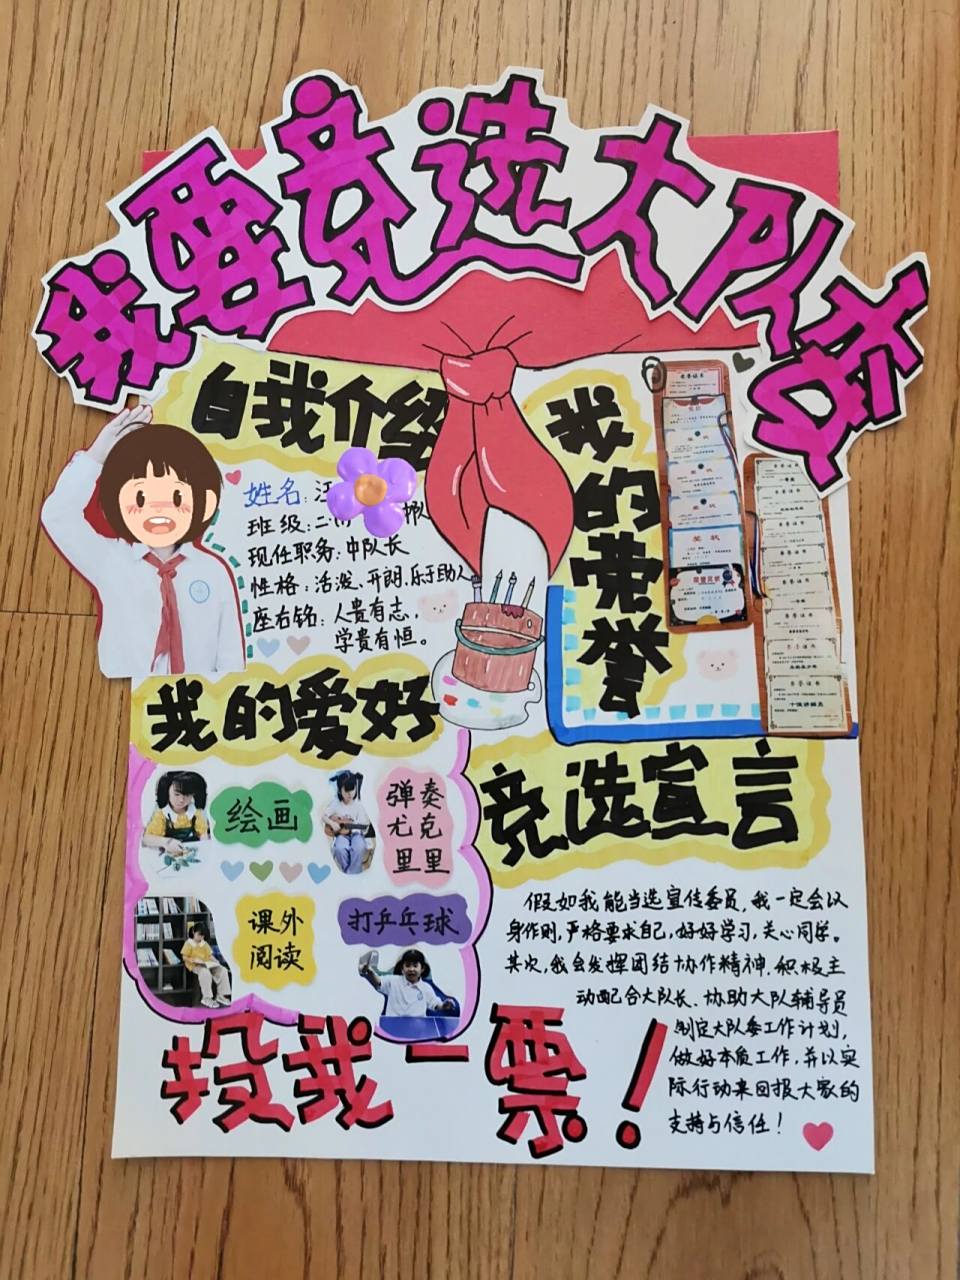 我要竞选大队委
自我介绍
姓名:汪
班级:二
现任职务:中队长
性格:活泼、开朗、乐于助人
座右铭:人贵有志,
学贵有恒。
我的荣誉
荣誉证书
奖状
奖状
奖状
奖状
荣誉证书
一等奖
荣誉证书
荣誉证书
荣誉证书
荣誉证书
十佳讲解员
我的爱好
绘画
弹奏
尤克
里里
课外
阅读
打乒乓球
竞选宣言
假如我能当选宣传委员,我一定会以
身作则,严格要求自己,好好学习,关心同学。
其次,我会发挥团结协作精神,积极主
动配合大队长、协助大队辅导员
制定大队委工作计划,
做好本质工作,并以实
际行动来回报大家的
支持与信任!
投我一票!